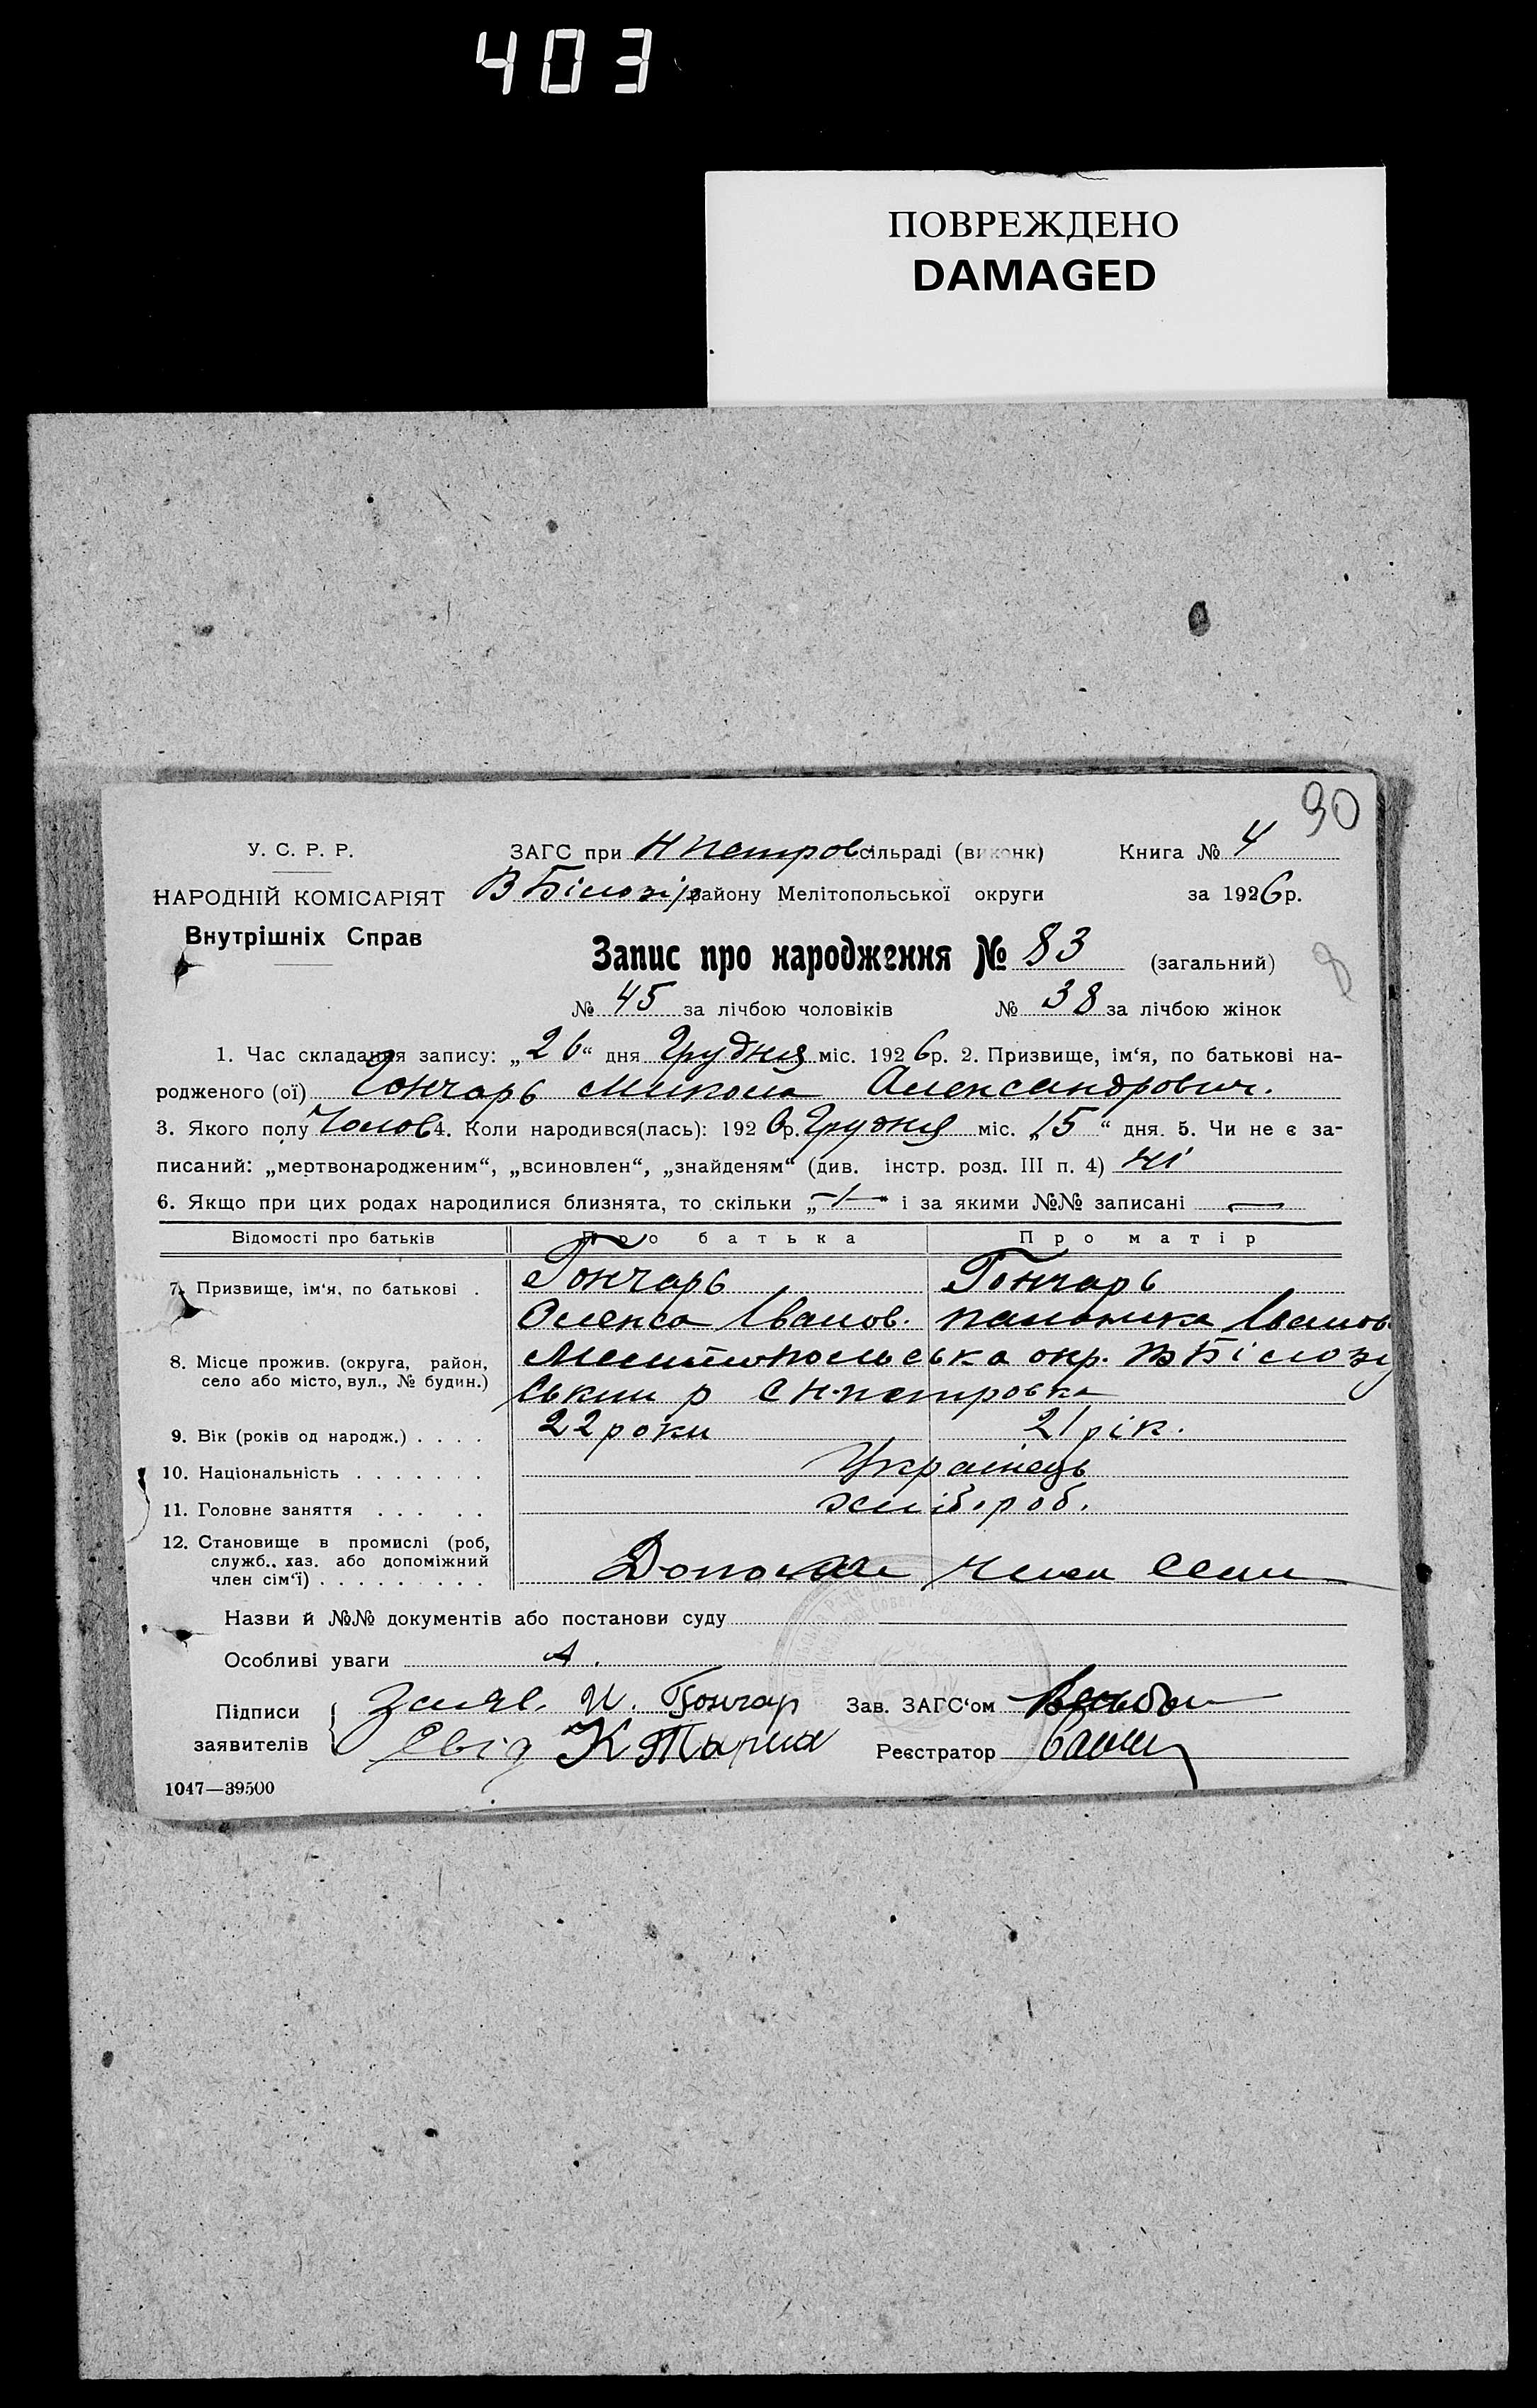 403
ПОВРЕЖДЕНО
DAMAGED
90
У. С. Р. Р.
ЗАГС при Н Петров сільраді (виконк) Книга № 4
НАРОДНІЙ КОМІСАРІЯТ В Білозір району Мелітопольської округи за 1926 р.
Внутрішніх Справ
Запис про народження № 83 (загальний)
8
№ 45 за лічбою чоловіків № 38 за лічбою жінок
1. Час складання запису: „26“ дня Грудня міс. 1926 р. 2. Призвище, ім‘я, по батькові на-
родженого (ої) Гончарь Микола Александрович.
3. Якого полу Чолов 4. Коли народився(лась): 1926 р. Грудня міс. „15“ дня. 5. Чи не є за-
писаний: „мертвонародженим“, „всиновлен“, „знайденям“ (див. інстр. розд. III п. 4) ні
6. Якщо при цих родах народилися близнята, то скільки „—“ і за якими №№ записані —
Відомості про батьків Про батька Про матір
7. Призвище, ім‘я, по батькові . Гончарь Гончарь
Олекса Іванов. Іванов
8. Місце прожив. (округа, район, Мелитопольська окр. В Білозір
село або місто, вул., № будин.) ський р с Н-петровка
9. Вік (років од народж.) . . . . 22 роки 21 рік.
10. Національність . . . . . . . Українець
11. Головне заняття . . . . . хліб.роб.
12. Становище в промислі (роб,
служб., хаз. або допоміжний
член сім‘ї) . . . . . . . . . член семи
Назви й №№ документів або постанови суду
Особливі уваги
Підписи Заявл. И. Гончар Зав. ЗАГС‘ом
заявителів Свід К Реєстратор
1047—39500